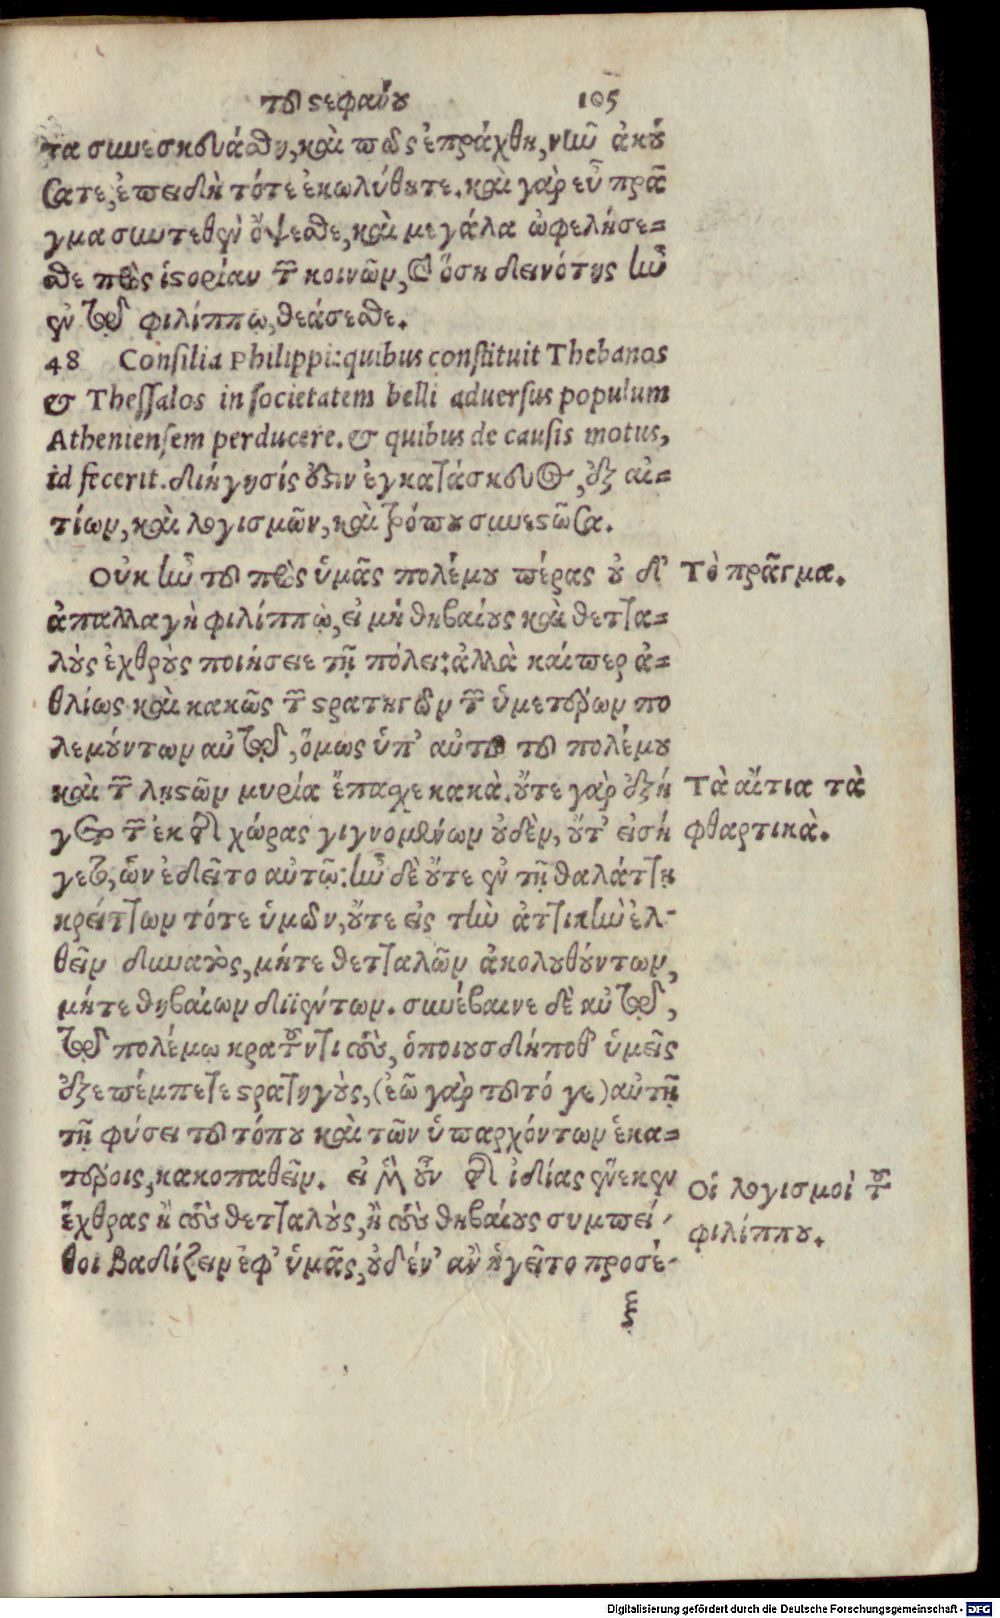 τοῦ στεφάνου 105
τα συνεσκευάσθη, καὶ πῶς ἐπράχθη, νῦν ἀκού
σατε, ἐπειδὴ τότε ἐκωλύθητε. καὶ γὰρ εὖ πρᾶ
γμα συντεθὲν ὄψεσθε, καὶ μεγάλα ὠφελήσε=
σθε πρὸς ἱστορίαν τῶν κοινῶν, καὶ ὅση δεινότης ἦν
ἐν τῷ φιλίππῳ, θεάσεσθε.
48 Consilia Philippi: quibus constituit Thebanos
& Thessalos in societatem belli aduersus populum
Atheniensem perducere. & quibus de causis motus,
id fecerit. διήγησίς ἐστιν ἐγκατάσκευος, ἐξ αἰ=
τίων, καὶ λογισμῶν, καὶ τρόπου συνεστῶσα.
Οὐκ ἦν τοῦ πρὸς ὑμᾶς πολέμου πέρας οὐ δ'
ἀπαλλαγὴ φιλίππῳ, εἰ μὴ θηβαίους καὶ θετta=
λοὺς ἐχθροὺς ποιήσειε τῇ πόλει: ἀλλὰ καίπερ ἀ=
θλίως καὶ κακῶς τῶν στρατηγῶν τῶν ὑμετέρων πο
λεμούντων αὐτῷ, ὅμως ὑπ' αὐτοῦ τοῦ πολέμου
καὶ τῶν λῃστῶν μυρία ἔπασχε κακὰ. οὔτε γὰρ ἐξή
γετο τῶν ἐκ τῆς χώρας γιγνομένων οὐδὲν, οὔτ' εἰσή
γετο, ὧν ἐδεῖτο αὐτῷ: ἦν δὲ οὔτε ἐν τῇ θαλάττῃ
κρείττων τότε ὑμῶν, οὔτε εἰς τὴν ἀττικὴν ἐλ-
θεῖν δυνατὸς, μήτε θετταλῶν ἀκολουθούντων,
μήτε θηβαίων διϊέντων. συνέβαινε δὲ αὐτῷ,
τῷ πολέμῳ κρατοῦντι τοὺς, ὁποιουσδήποθ' ὑμεῖς
ἐξεπέμπετε στρατηγοὺς, (ἐῶ γὰρ τοῦτό γε) αὐτῇ
τῇ φύσει τοῦ τόπου καὶ τῶν ὑπαρχόντων ἑκα=
τέροις, κακοπαθεῖν. εἰ μὲν οὖν τῆς ἰδίας ἕνεκεν
ἔχθρας ἢ τοὺς θετταλοὺς, ἢ τοὺς θηβαίους συμπεί-
θοι βαδίζειν ἐφ' ὑμᾶς, οὐδέν' ἂν ἡγεῖτο προσέ-
ξ
Τὸ πρᾶγμα.
Τὰ αἴτια τὰ
φθαρτικὰ.
Οἱ λογισμοὶ τοῦ
φιλίππου.
Digitalisierung gefördert durch die Deutsche Forschungsgemeinschaft - DFG